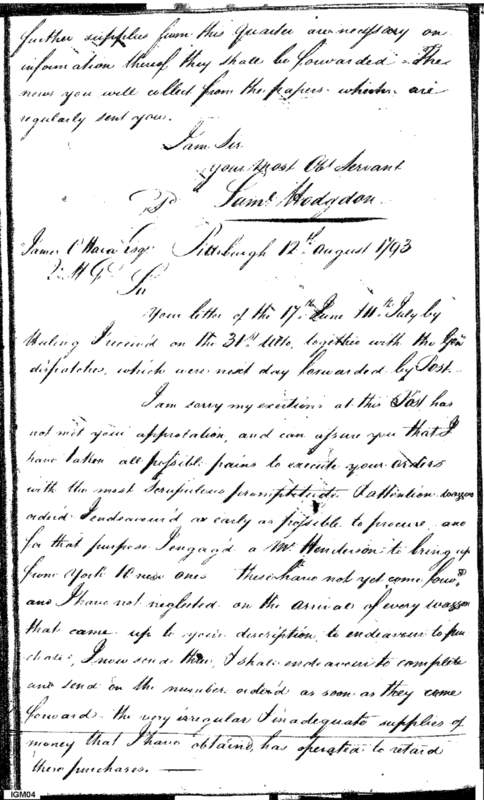 further supplies from this Quarter are necessary on
information thereof they shall be forwarded - The
news you will collect from the papers which are
regularly sent you.
I am Sir
your Most Obt Servant
Saml Hodgdon
James O'Hara Esqr Pittsburgh 12th August 1793
Q M G
Sir
Your letter of the 17th June & 11th July by
I received on the 31st Ulto, together with the Genl
dispatches, which were next day forwarded by Post. -
I am sorry my exertions at this Post has
not met your approbation, and can assure you that I
have taken all possible pains to execute your orders
with the most Scrupulous promptitude & attention waggons
order'd I endeavour'd as early as possible to procure, and
for that purpose I engag'd a Mr Henderson to bring up
from York 10 new ones these have not yet come forwd
and I have not neglected on the arrival of every waggon
that came up to your description, to endeavour to pur
chase, I now send three, I shall endeavour to complete
and send on the number order'd as soon as they come
forward - the very irregular & inadequate supplies of
money that I have obtaind, has operated to retard
these purchases. —
IGM04